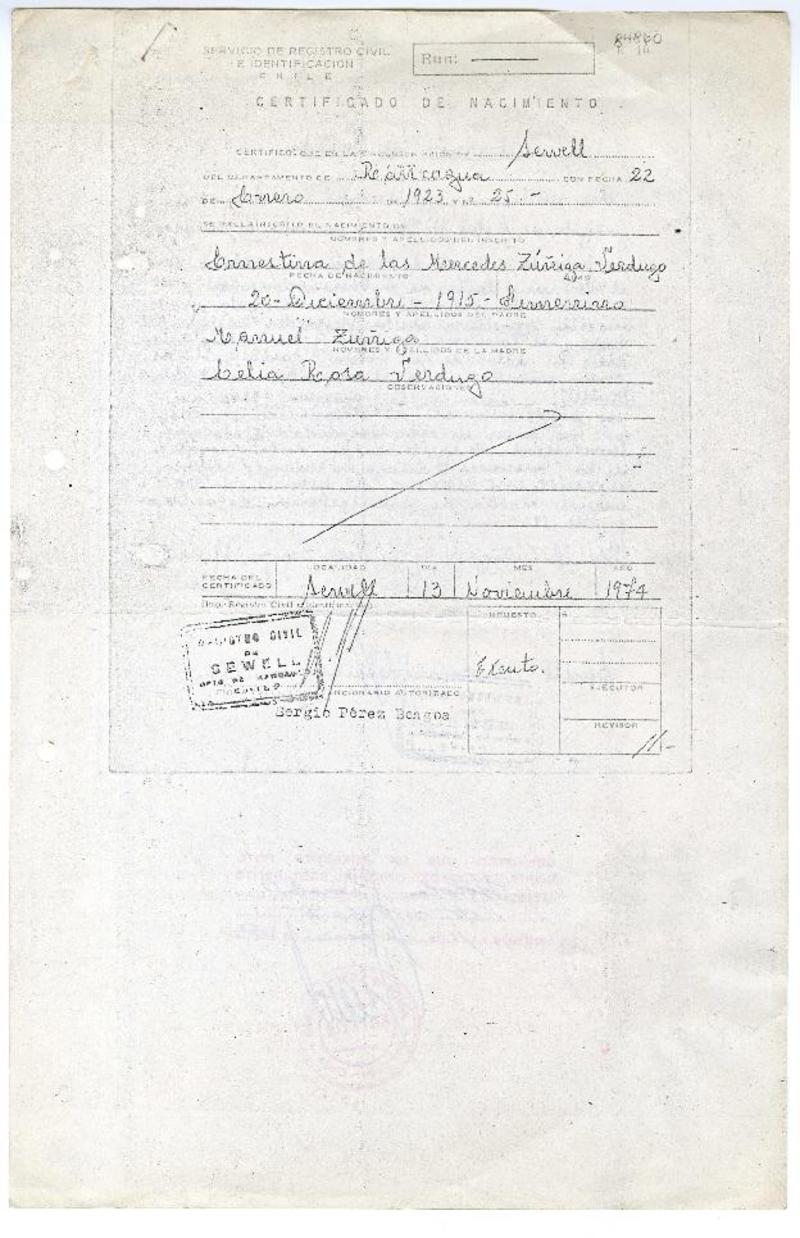 84860
SERVICIO DE REGISTRO CIVIL
E IDENTIFICACION
CHILE
Run:
CERTIFICADO DE NACIMIENTO
CERTIFICO: QUE EN LA CIRCUNSCRIPCION DE Sewell
DEL DEPARTAMENTO DE Rancagua CON FECHA 22
DE Enero DE 1923 Y Nº 25.-
SE HALLA INSCRITO EL NACIMIENTO DE
NOMBRES Y APELLIDOS DEL INSCRITO
Ernestina de las Mercedes Zúñiga Verdugo
FECHA DE NACIMIENTO SEXO
20- Diciembre - 1915 - Femenino
NOMBRES Y APELLIDOS DEL PADRE
Manuel Zúñiga
NOMBRES Y APELLIDOS DE LA MADRE
Celia Rosa Verdugo
OBSERVACIONES
LOCALIDAD DIA MES AÑO
FECHA DEL CERTIFICADO Sewell 13 Noviembre 1974
Dep. Registro Civil e Identificación
REGISTRO CIVIL
DE
SEWELL
IMPUESTO $
Exento.
FUNCIONARIO AUTORIZADO
Sergio Pérez Bongoa
EJECUTOR
REVISOR